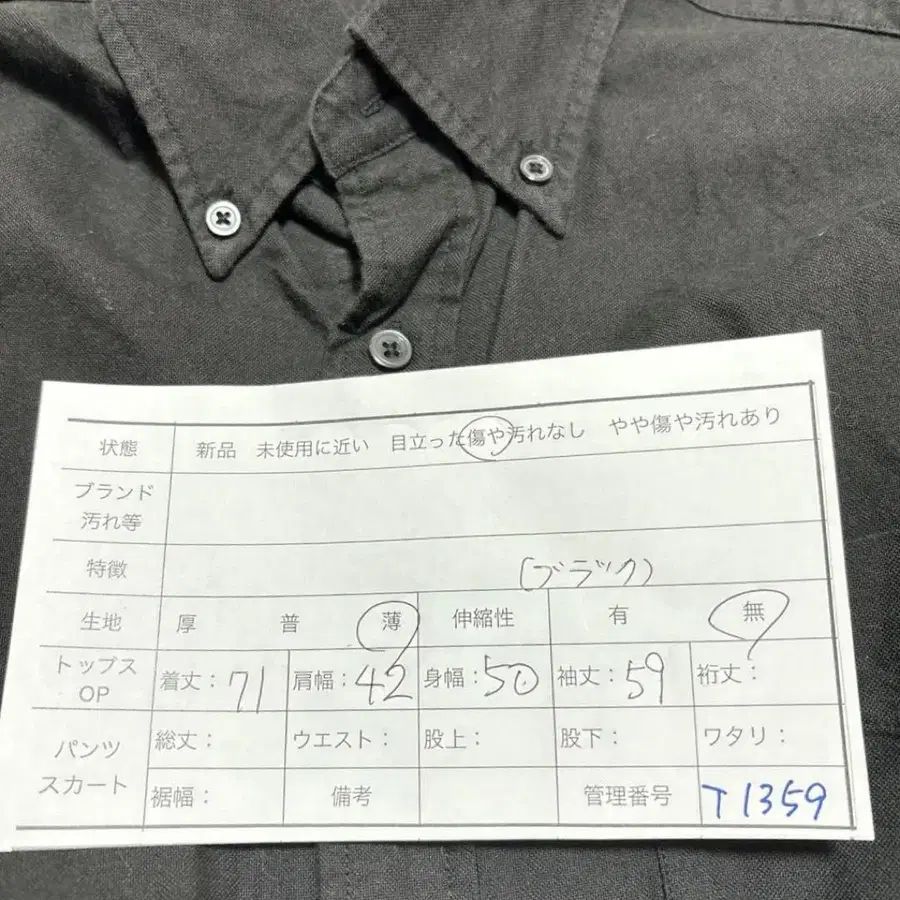 状態 新品 未使用に近い 目立った傷や汚れなし やや傷や汚れあり
ブランド
汚れ等
特徴 (ブラック)
生地 厚 普 薄 伸縮性 有 無
トップス
OP
着丈：71 肩幅：42 身幅：50 袖丈：59 裄丈：
パンツ
スカート
総丈： ウエスト： 股上： 股下： ワタリ：
裾幅： 備考 管理番号 T1359